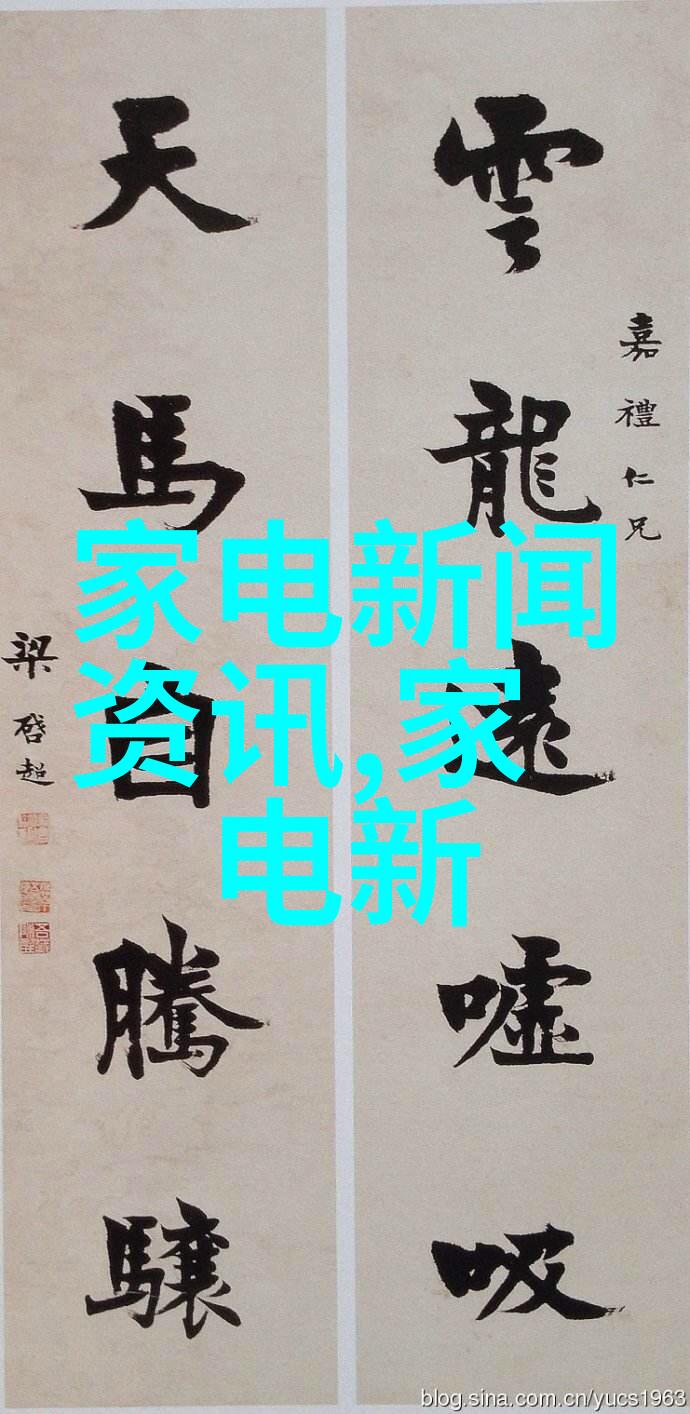 雲龍遠嘘吸
嘉禮仁兄
天馬自騰驤
梁啓超
家电新闻
资讯,家
电新
blog.sina.com.cn/yucs1963